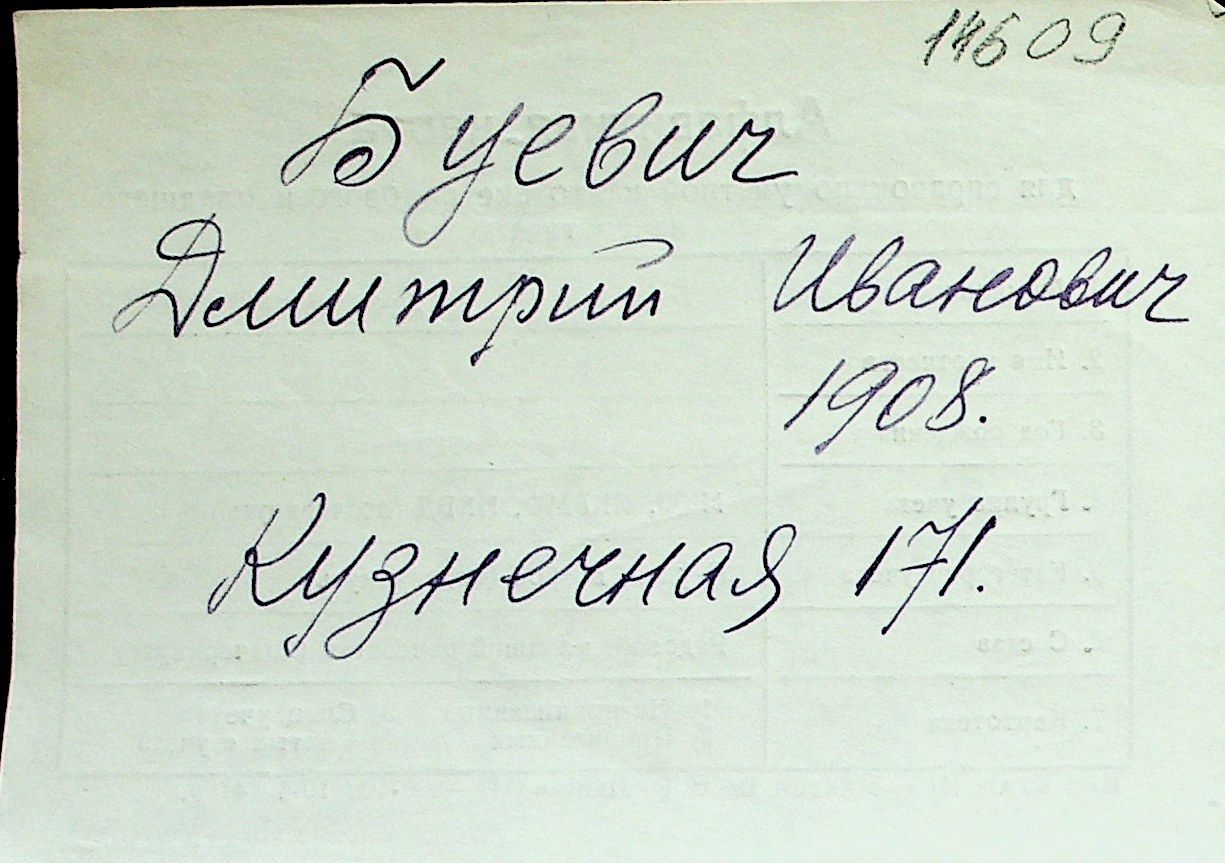 14609
Буевич
Дмитрий Иванович
1908.
Кузнечная 171.